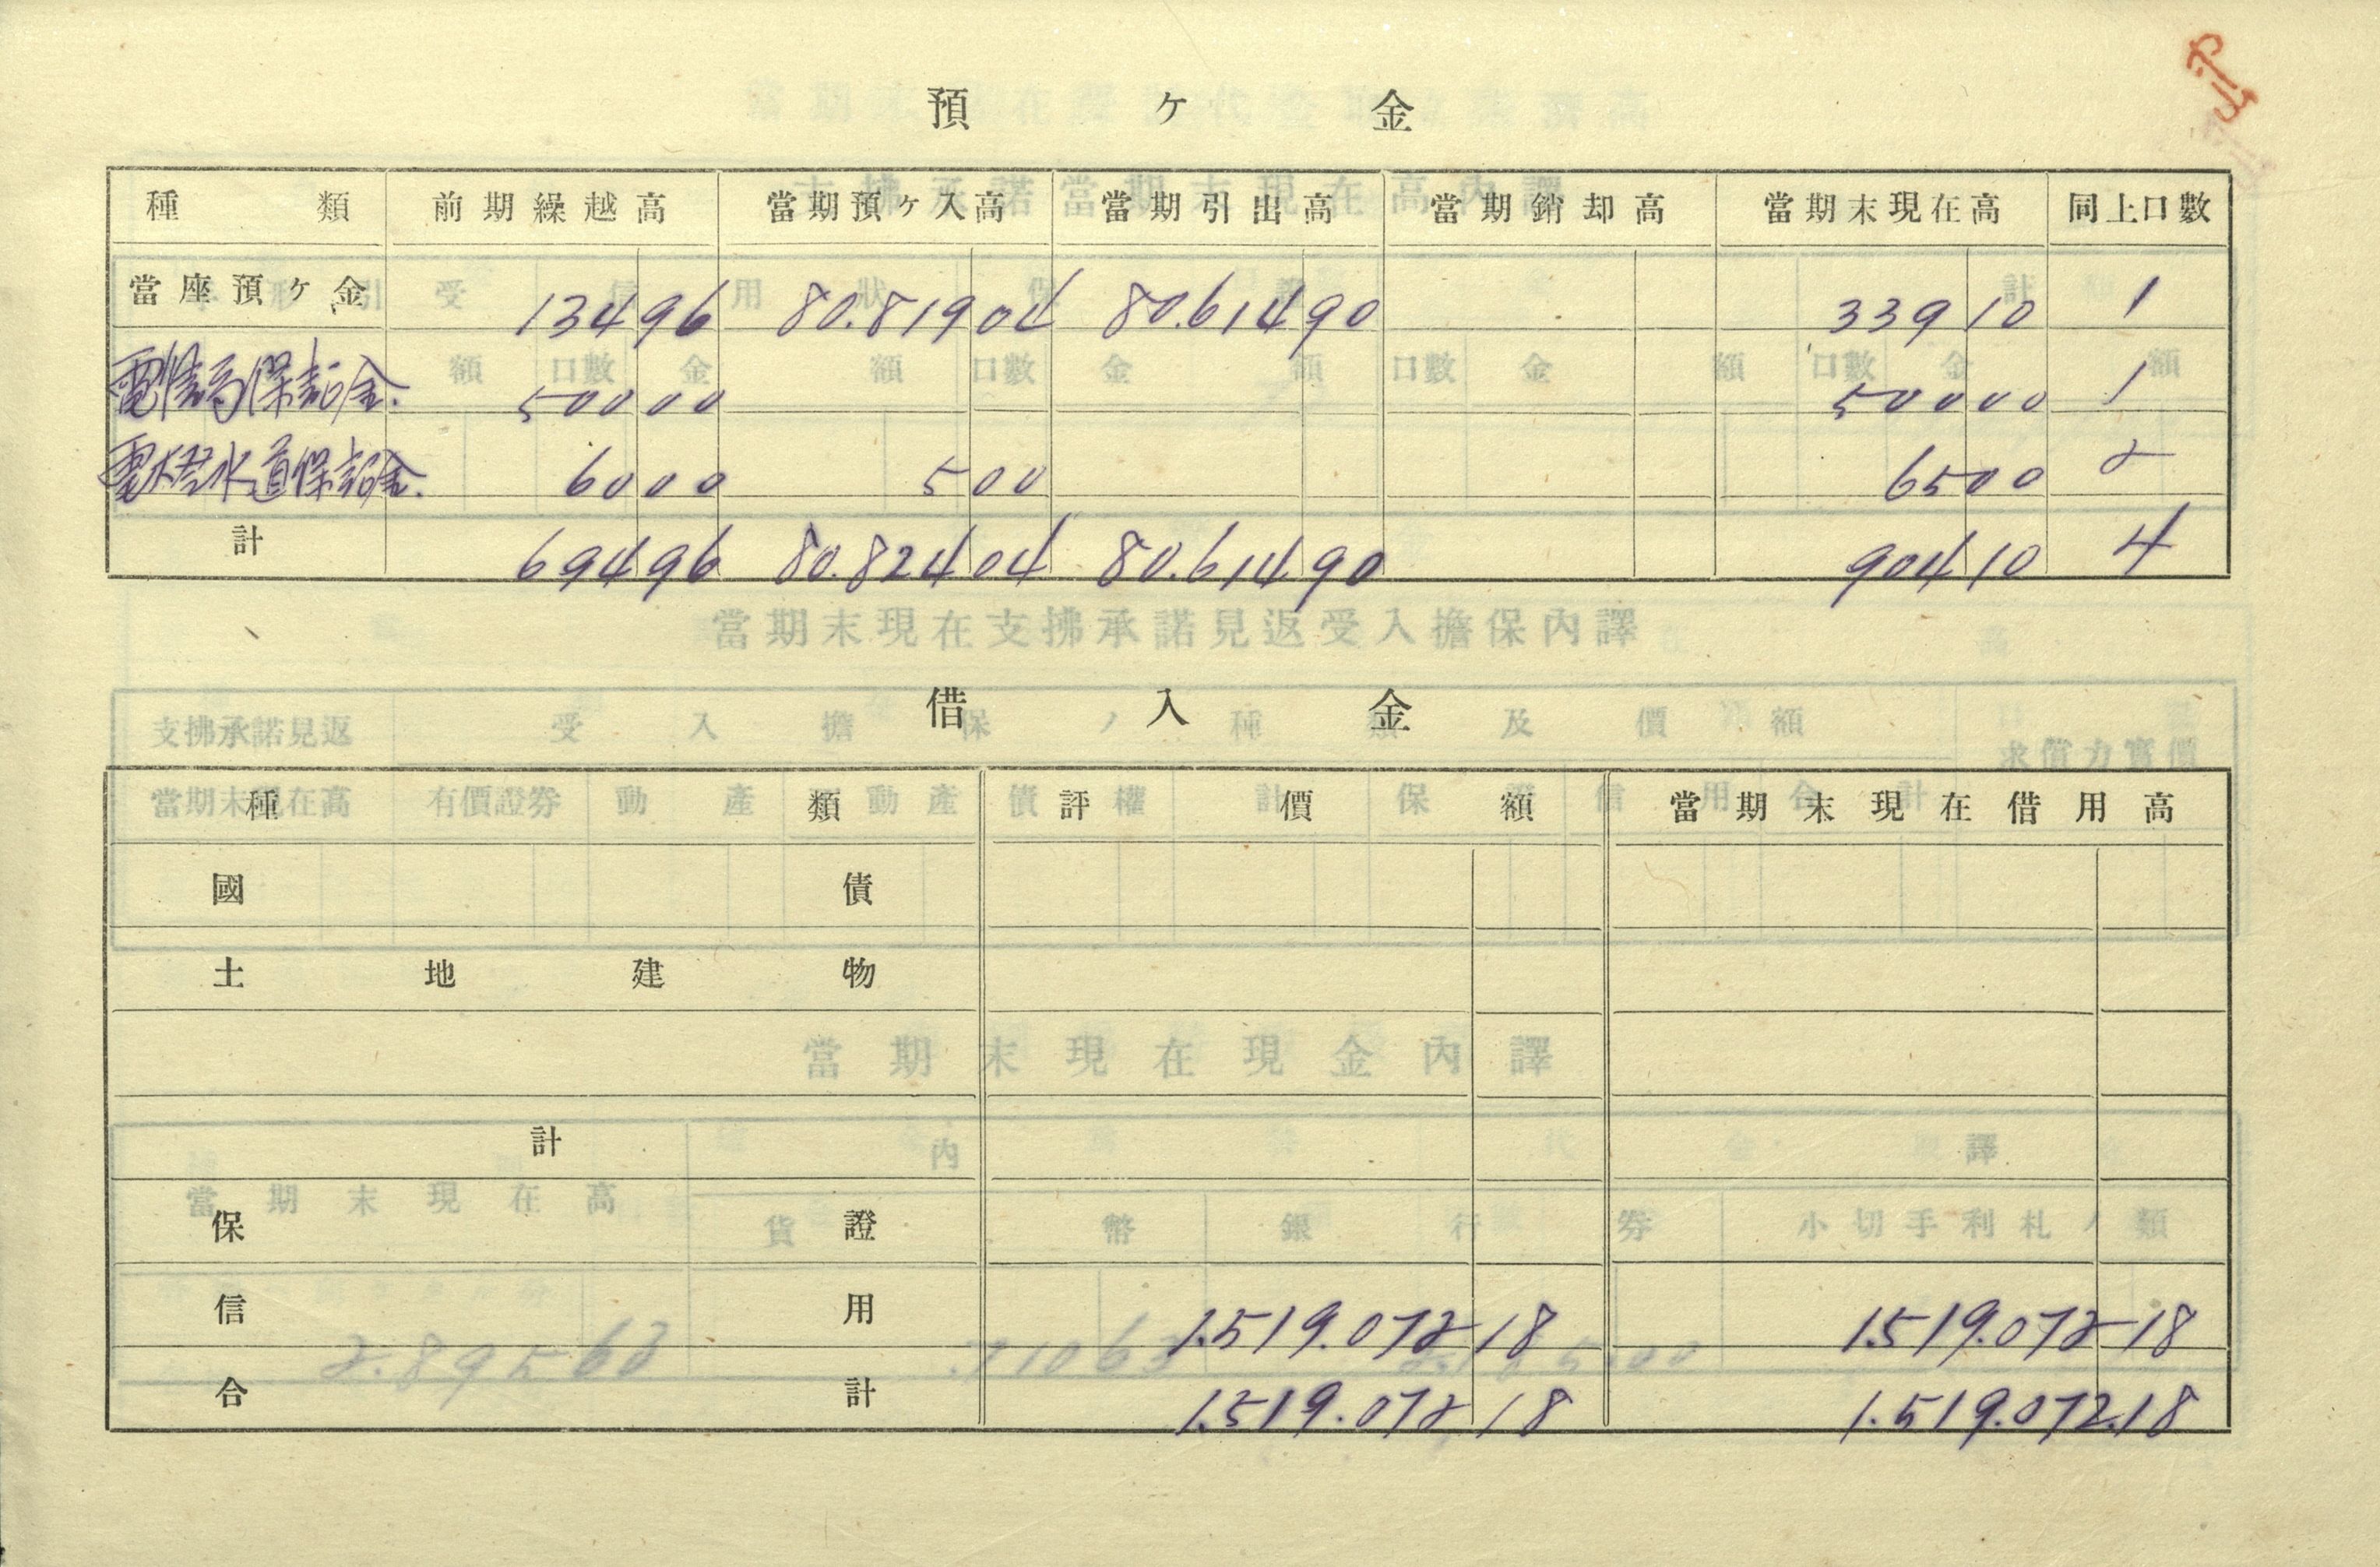 預ヶ金
種類 前期繰越高 當期預ヶ入高 當期引出高 當期銷却高 當期末現在高 同上口數
當座預ヶ金 134 96 80.819 04 80.614 90 339 10 1
電信局保証金. 500 00 500 00 1
電灯水道保証金. 60 00 5 00 65 00 2
計 694 96 80.824 04 80.614 90 904 10 4
借入金
種類 評價額 當期末現在借用高
國債
土地建物
計
保證
信用 1.519.072 18 1.519.072 18
合計 1.519.072 18 1.519.072.18